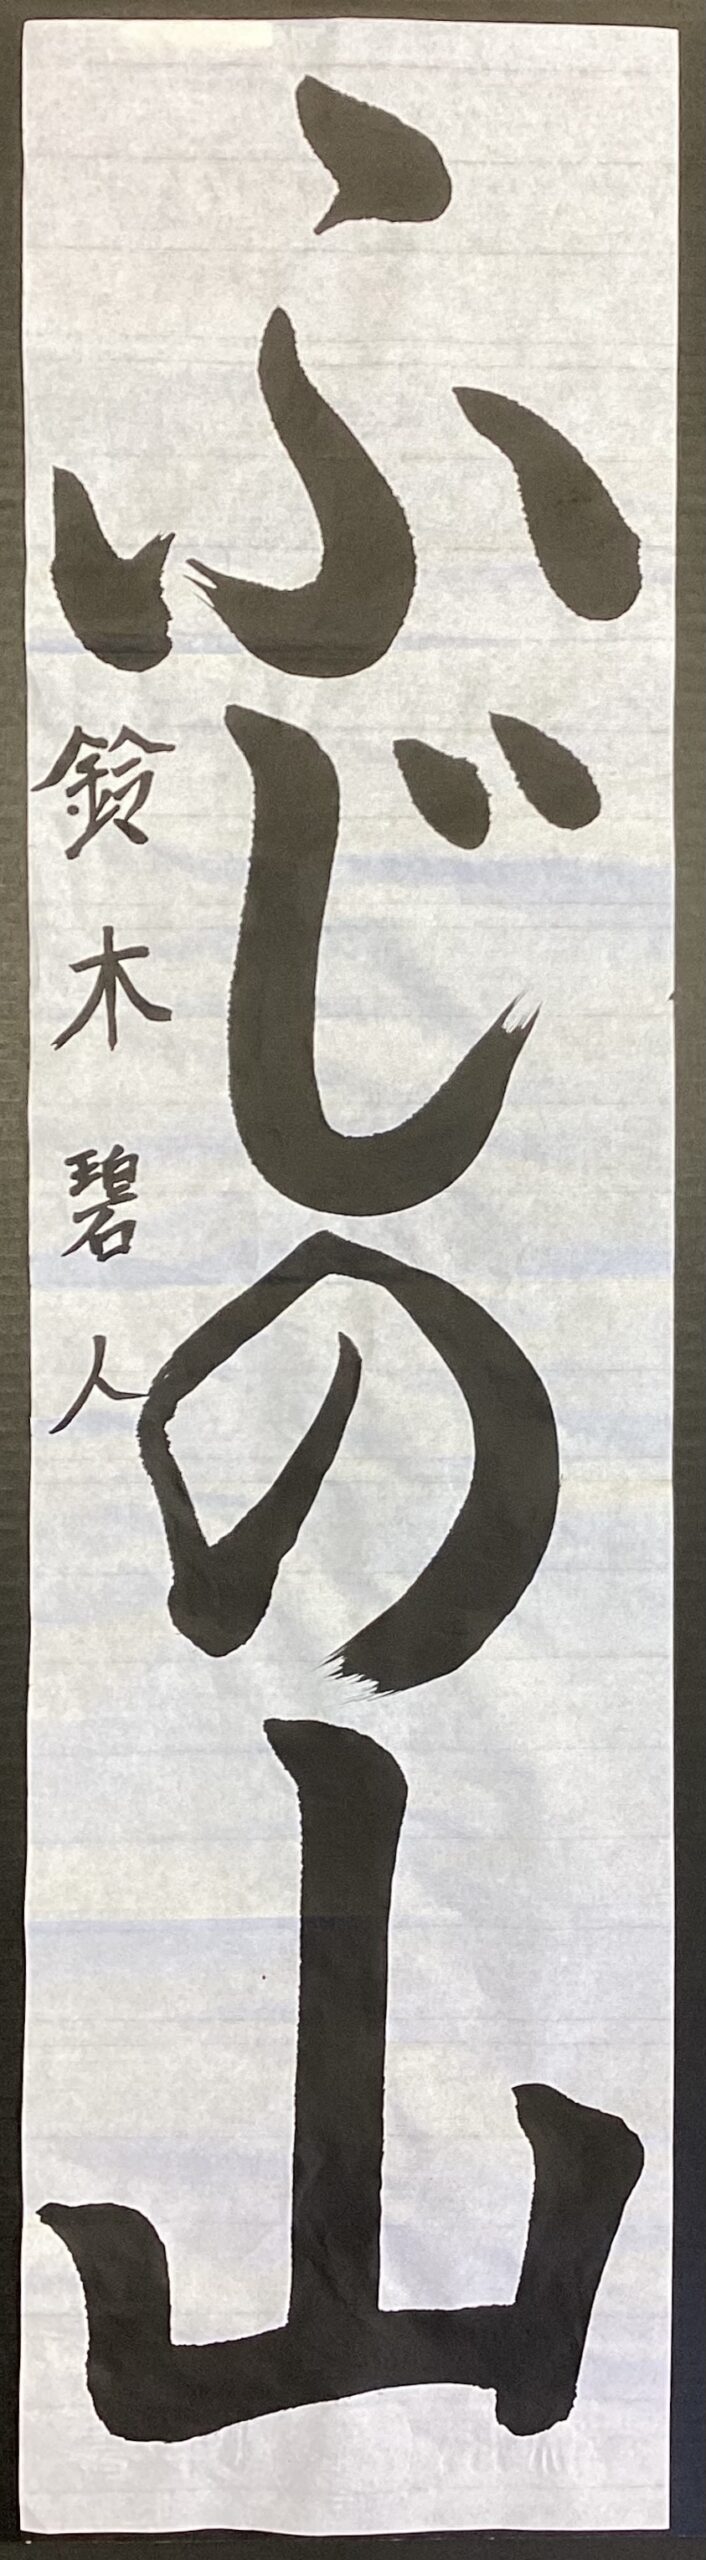 ふじの山
鈴木碧人